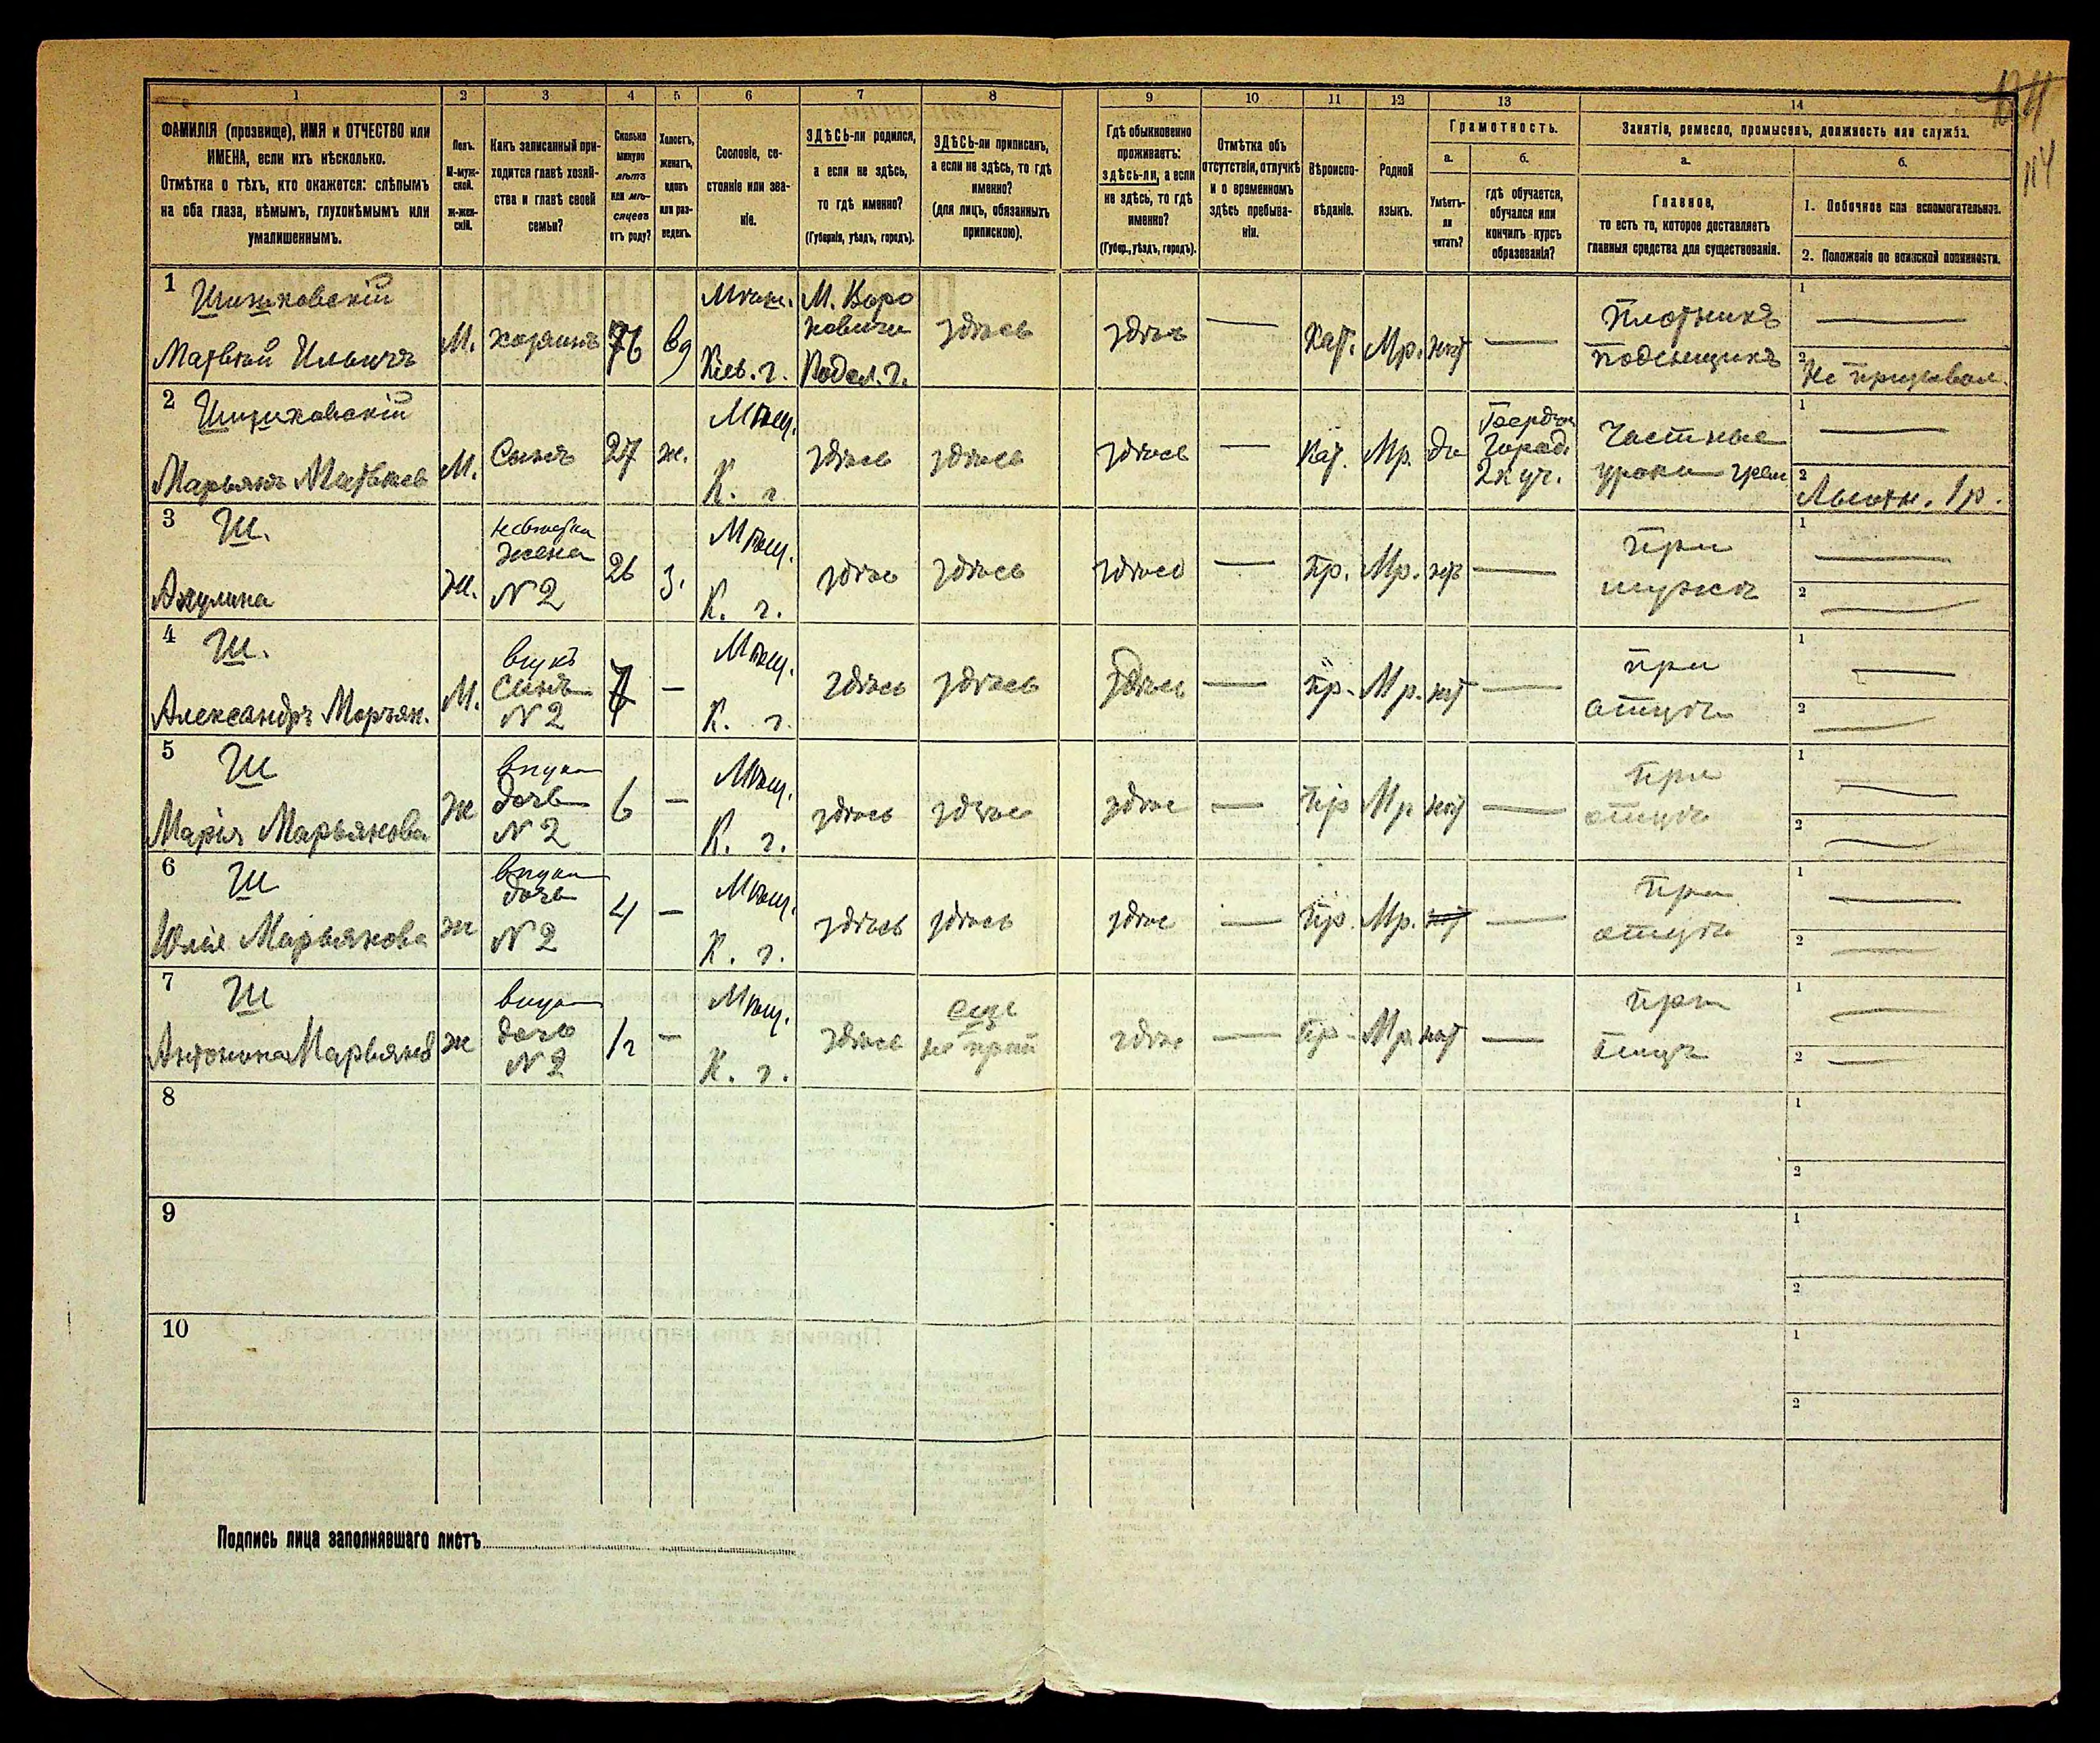 1 2 3 4 5 6 7 8 9 10 11 12 13 14
ФАМИЛІЯ (прозвище), ИМЯ и ОТЧЕСТВО или
ИМЕНА, если ихъ нѣсколько.
Отмѣтка о тѣхъ, кто окажется: слѣпымъ
на оба глаза, нѣмымъ, глухонѣмымъ или
умалишеннымъ.
Полъ.
М-муж-
ской.
ж-жен-
скій.
Какъ записанный при-
ходится главѣ хозяй-
ства и главѣ своей
семьи?
Сколько
минуло
лѣтъ
или мѣ-
сяцевъ
отъ роду?
Холостъ,
женатъ,
вдовъ
или раз-
веденъ.
Сословіе, со-
стояніе или зва-
ніе.
ЗДѢСЬ-ли родился,
а если не здѣсь,
то гдѣ именно?
(Губернія, уѣздъ, городъ).
ЗДѢСЬ-ли приписанъ,
а если не здѣсь, то гдѣ
именно?
(для лицъ, обязанныхъ
припискою).
Гдѣ обыкновенно
проживаетъ:
здѣсь-ли, а если
не здѣсь, то гдѣ
именно?
(Губер., уѣздъ, городъ).
Отмѣтка объ
отсутствіи, отлучкѣ
и о временномъ
здѣсь пребыва-
ніи.
Вѣроиспо-
вѣданіе.
Родной
языкъ.
Грамотность.
а.
Умѣетъ-
ли
читать?
б.
гдѣ обучается,
обучался или
кончилъ курсъ
образованія?
Занятіе, ремесло, промыселъ, должность или служба.
а.
Главное,
то есть то, которое доставляетъ
главныя средства для существованія.
б.
1. Побочное или вспомогательное.
2. Положеніе по воинской повинности.
114
1
Шишковскій
Матвѣй Ильичъ
М.
хозяинъ
76
вд
Мѣщ.
Кіев. г.
М. Воро
новичи
Подол. г.
здѣсь
здѣсь
—
Кат.
Мр.
нѣт
—
Плотникъ
поденщикъ
1 —
2 Не призывал.
2
Марьянъ Матвѣев
М.
Сынъ
27
ж.
Мѣщ.
К. г.
здѣсь
здѣсь
здѣсь
—
Кат.
Мр.
да
Город.
2 к уч.
Частные
уроки
1 —
2 Льготн. 1 р.
3
Ш.
Акулина
ж.
невѣстка
жена
N 2
26
з.
Мѣщ.
К. г.
здѣсь
здѣсь
здѣсь
—
Пр.
Мр.
нѣт
—
при
мужѣ
1 —
2 —
4
Ш.
Александръ Марьян.
М.
внукъ
сынъ
N 2
7
—
Мѣщ.
К. г.
здѣсь
здѣсь
здѣсь
—
Пр.
Мр.
нѣт
—
при
отцѣ
1 —
2 —
5
Ш
Марія Марьянова
ж
внучка
дочь
N 2
6
—
Мѣщ.
К. г.
здѣсь
здѣсь
здѣс
—
Пр
Мр.
нѣт
—
при
отцѣ
1 —
2 —
6
Ш
Юлія Марьянова
ж
внучка
дочь
N 2
4
—
Мѣщ.
К. г.
здѣсь
здѣсь
здѣс
—
Пр.
Мр.
нѣт
—
при
отцѣ
1 —
2 —
7
Ш
Антонина Марьянов
ж
внучка
дочь
N 2
—
Мѣщ.
К. г.
здѣсь
еще
не
здѣс
—
Пр.
Мр.
нѣт
—
при
отцѣ
1 —
2 —
8
1
2
9
1
2
10
1
2
Подпись лица заполнявшаго листъ